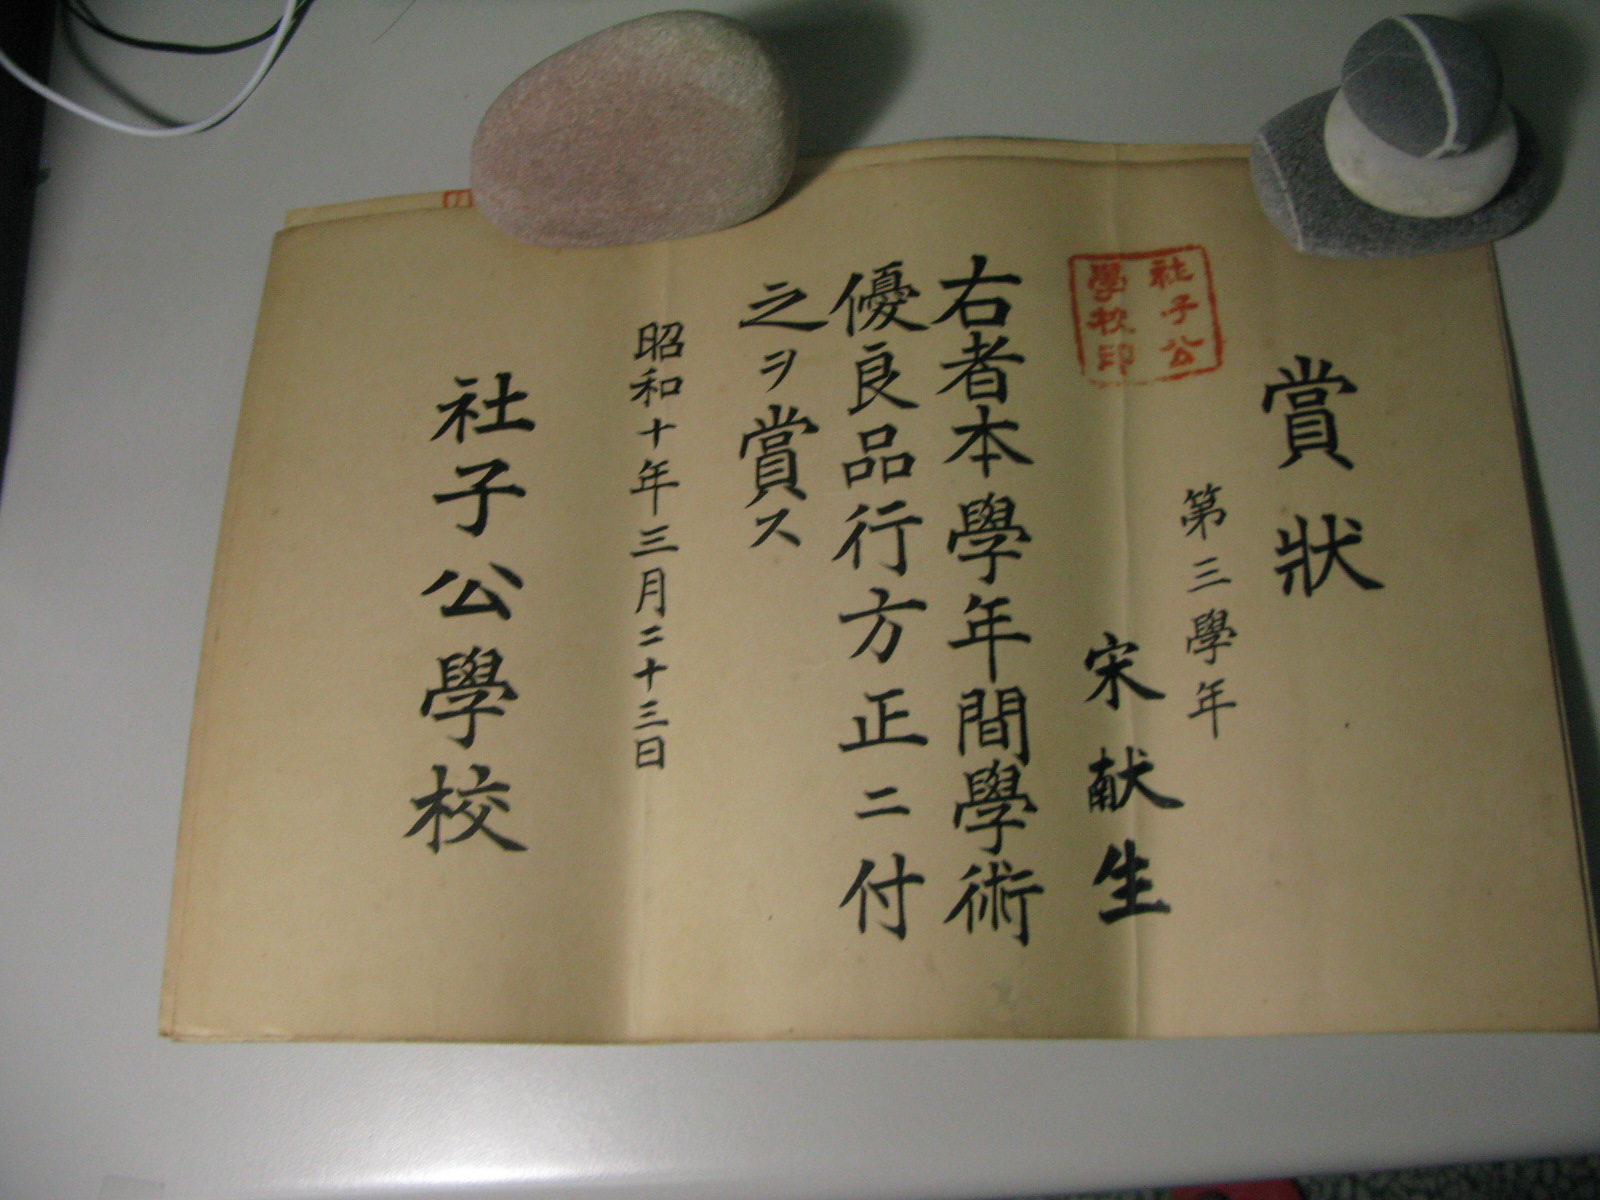 賞狀
第三學年
宋献生
社子公
學校印
右者本學年間學術
優良品行方正ニ付
之ヲ賞ス
昭和十年三月二十三日
社子公學校